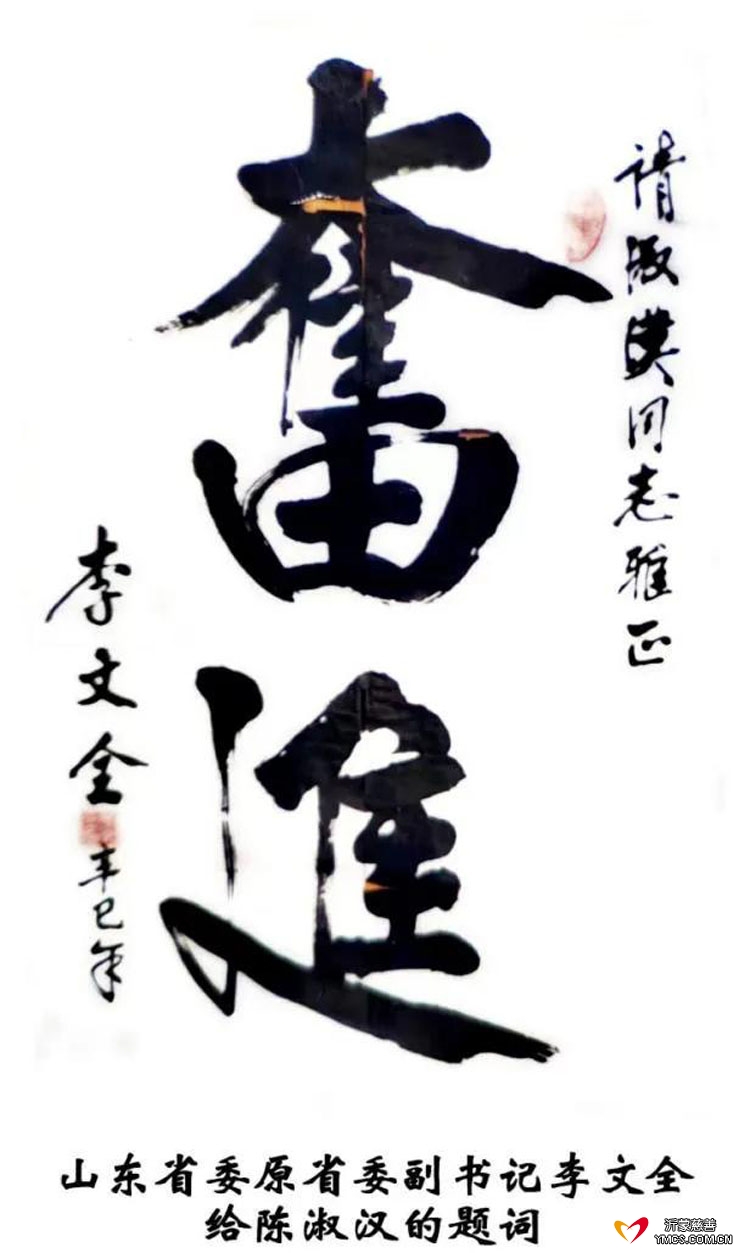 请淑漢同志雅正
奮進
李文全
辛巳年
山东省委原省委副书记李文全
给陈淑汉的题词
沂蒙慈善
YMCS.COM.CN